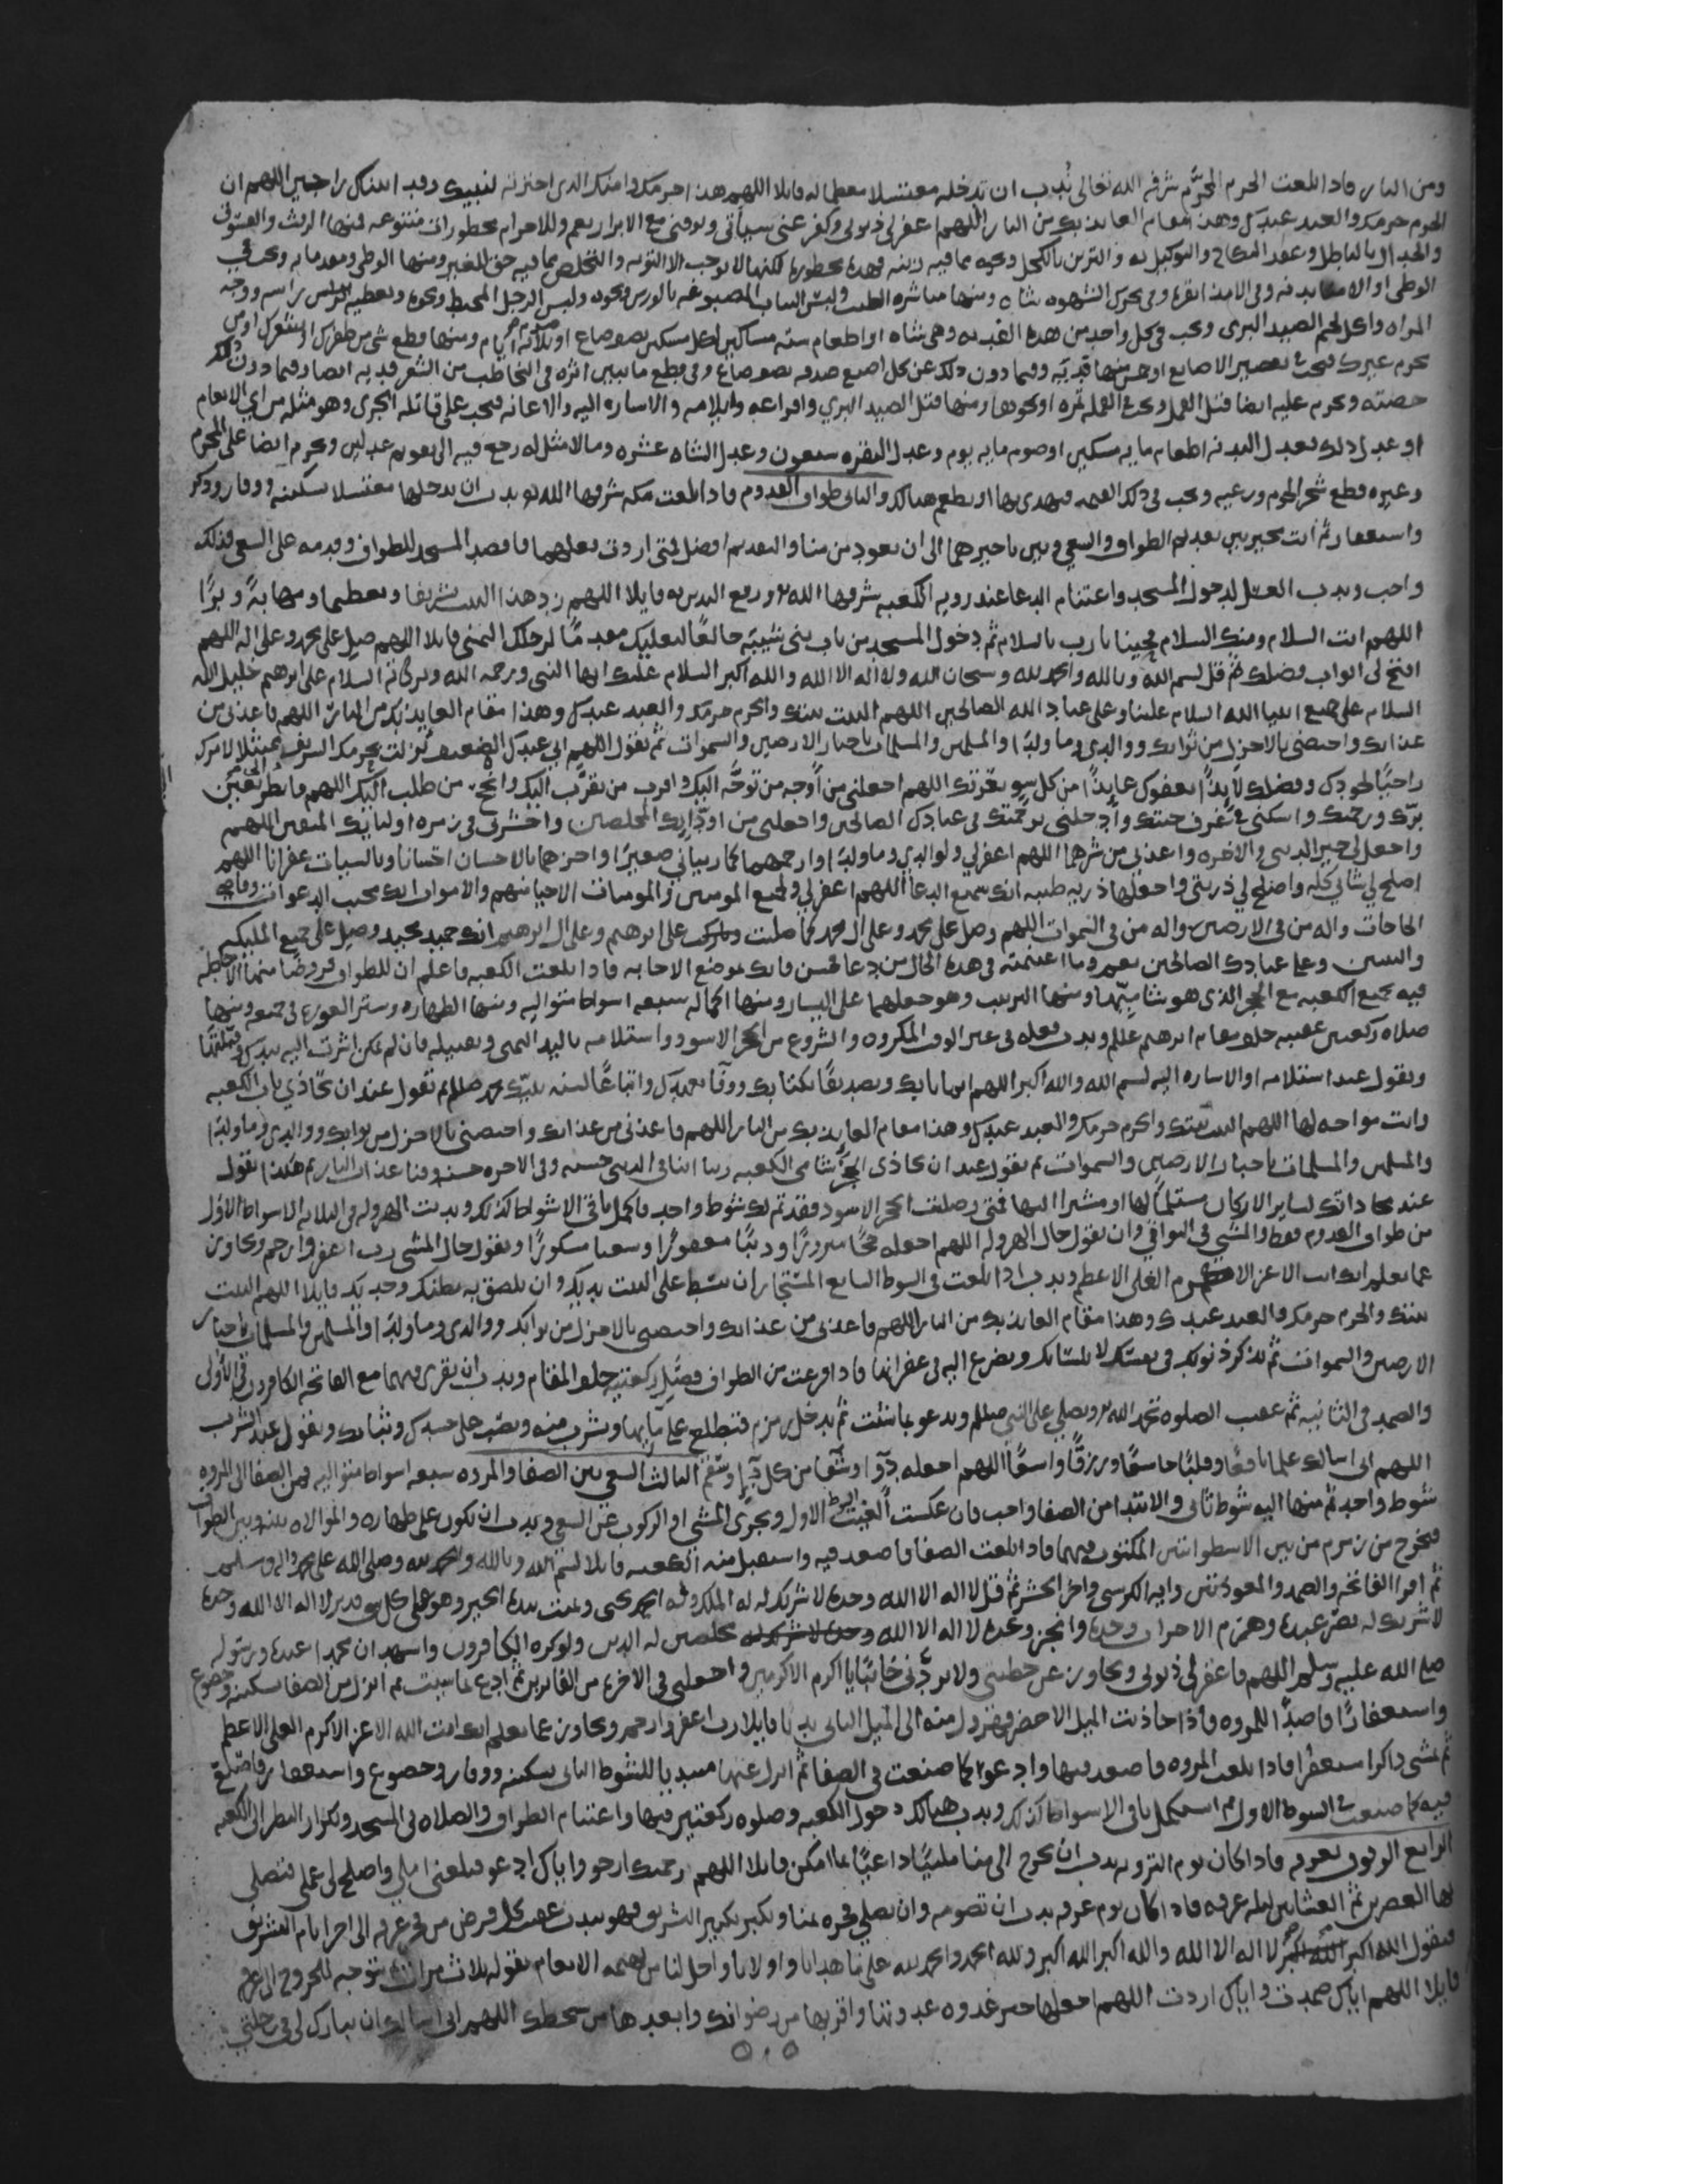 ومن النار فاذا بلغت الحرم المحرّم شرفه الله تعالى نُدب ان تدخله مغتسلا معظما له قايلا اللهم هذا حرمك وامنك الذي اخترته لنبيك وقد اتيناك راجين اللهم ان
الحرم حرمك والعبد عبدك وهذا مقام العايذ بك من النار اللهم اغفر لي ذنوبي وكفر عني سيأتي وتوفني مع الابرار نعم وللاحرام محظورات متنوعه فمنها الرفث والفسوق
والجدال بالباطل وعقد النكاح والتوكيل به والتزين بالكحل ونحوه مما فيه زينه فهذه محظوره لكنها لا توجب الا التوبه والتخلص مما فيه حق للغير ومنها الوطى ومقدماته وتجب في
الوطى او الامنا بدنه وفي الامذا بقره وفي تحرك الشهوه شاه ومنها مباشره الطيب ولبس الثياب المصبوغه بالورس ونحوه ولبس الرجل المخيط ونحوه وتغطيه الراس براسه ووجه
المراه واكل لحم الصيد البري وتجب في كل واحد من هذه الفديه وهي شاه او اطعام سته مساكين لكل مسكين نصف صاع او صيام ثلاثه ايام ومنها قطع شي من ظفرك او شعرك او من
محرم غيرك فتجب في تقصير الاصابع او خمس منها فديه وفيما دون ذلك عن كل اصبع صدقه نصف صاع وفي قطع ما يبين اثره في التخاطب من الشعر فديه ايضا وفيما دون ذلك
حصته ويحرم عليه ايضا قتل القمل وتجب في القمله تمره او نحوها ومنها قتل الصيد البري وافزاعه وايلامه والاشاره اليه والاعانه فتجب على قاتله الجزى وهو مثله من اي الانعام
او عدل ذلك فعدل البدنه اطعام مايه مسكين او صوم مايه يوم وعدل البقره سبعون وعدل الشاه عشره وما لا مثل له رجع فيه الى تقويم عدلين ويحرم ايضا على المحرم
وغيره قطع شجر الحرم ورعيه وتجب في ذلك القيمه فيهدى بها او يطعم هنالك والثاني طواف القدوم فاذا بلغت مكه شرفها الله ندب ان تدخلها مغتسلا بسكينه ووقار وذكر
واستغفار ثم انت مخير بين تقديم الطواف والسعي وبين تاخيرهما الى ان تعود من منا والتقديم افضل فمتى اردت فعلهما فاقصد المسجد للطواف وقدمه على السعي فذلك
واجب وندب الغسل لدخول المسجد واغتنام الدعا عند رويه الكعبه شرفها الله ورفع اليدين قايلا اللهم زد هذا البيت تشريفا وتعظيما ومهابةً وبرًا
اللهم انت السلام ومنك السلام فحينا يا رب بالسلام ثم دخول المسجد من باب بني شيبه خالعًا لنعليك مقدمًا لرجلك اليمنى قايلا اللهم صل على محمد وعلى اله اللهم
افتح لي ابواب فضلك ثم قل بسم الله وبالله والحمد لله وسبحان الله ولا اله الا الله والله اكبر السلام عليك ايها النبي ورحمه الله وبركاته السلام على ابرهيم خليل الله
السلام على جميع انبيا الله السلام علينا وعلى عباد الله الصالحين اللهم البيت بيتك والحرم حرمك والعبد عبدك وهذا مقام العايذ بك من النار اللهم فاعذني من
عذابك واختصني بالاجزل من ثوابك ووالدي وما ولدا والمسلمين والمسلمات يا جبار الارضين والسموات ثم تقول اللهم اني عبدك الضعيف نزلت بحرمك الشريف ممتثلا لامرك
راجيًا لجودك وفضلك لايذًا بعفوك عايذًا من كل سو بعزتك اللهم اجعلني من اوجه من توجّه اليك واقرب من تقرّب اليك وانجح من طلب اليك اللهم فانظر الي بعين
برّك ورحمتك واسكني في غرف جنتك وادخلني برحمتك في عبادك الصالحين واجعلني من اودّايك المخلصين واحشرني في زمره اوليايك المتقين اللهم
واجعل لي خير الدنيى والاخره واعذني من شرهما اللهم اغفر لي ولوالدي وما ولدا وارحمهما كما ربياني صغيرًا واجزهما بالاحسان احسانا وبالسيات غفرانا اللهم
اصلح لي شاني كله واصلح لي ذريتي واجعلها ذريه طيبه انك سميع الدعا اللهم اغفر لي ولجميع المومنين والمومنات الاحيا منهم والاموات انك مجيب الدعوات وقاضي
الحاجات واله من في الارضين واله من في السموات اللهم وصل على محمد وعلى ال محمد كما صليت وباركت على ابرهيم وعلى ال ابرهيم انك حميد مجيد وصل على جميع المليكه
والنبيين وعلى عبادك الصالحين نعم وما اغتنمته في هذه الحال من دعا فحسن فانك بموضع الاجابه فاذا بلغت الكعبه فاعلم ان للطواف فروضًا منها الاحاطه
فيه بجميع الكعبه مع الحجر الذي هو شاميّها ومنها الترتيب وهو جعلها على اليسار ومنها اكماله سبعه اشواط متواليه ومنها الطهاره وستر العوره في جميعه ومنها
صلاه ركعتين عقيبه خلف مقام ابرهيم عللم وندب فعله في غير الوقت المكروه والشروع من الحجر الاسود واستلامه باليد اليمنى وتقبيله فان لم يمكن اشرت اليه بيدك وقبّلتها
وتقول عند استلامه او الاشاره اليه بسم الله والله اكبر اللهم ايمانا بك وتصديقًا بكتابك ووفا بعهدك واتباعًا لسنه نبيّك محمد صللم ثم تقول عند ان تحاذي باب الكعبه
وانت مواجه لها اللهم البيت بيتك والحرم حرمك والعبد عبدك وهذا مقام العايذ بك من النار اللهم فاعذني من عذابك واختصني بالاجزل من ثوابك ووالدي وما ولدا
والمسلمين والمسلمات يا جبار الارضين والسموات ثم تقول عند ان تحاذي الحجر شامي الكعبه ربنا اتنا في الدنيى حسنه وفي الاخره حسنه وقنا عذاب النار ثم هكذا تقول
عند محاذاتك لساير الاركان مستلمًا لها او مشيرا اليها فمتى وصلت الحجر الاسود فقد تم لك شوط واحد فاكمل باقي الاشواط كذلك وندبت الهروله في الثلاثه الاشواط الاوَل
من طواف القدوم فقط والمشي في البواقي وان تقول حال الهروله اللهم اجعله حجًا مبرورًا وذنبًا مغفورًا وسعيا مشكورًا وتقول حال المشي رب اغفر وارحم وتجاوز
عما تعلم انك انت الاعز الاكرم العلي الاعظم وندب اذا بلغت في الشوط السابع المستجار ان تبسط على البيت يديك وان تلصق به بطنك وخديك قايلا اللهم البيت
بيتك والحرم حرمك والعبد عبدك وهذا مقام العايذ بك من النار اللهم فاعذني من عذابك واختصني بالاجزل من ثوابك ووالدي وما ولدا والمسلمين والمسلمات يا جبار
الارضين والسموات ثم تذكر ذنوبك في نفسك لا بلسانك وتضرع اليه في غفرانها فاذا فرغت من الطواف فصَلِ ركعتيه خلف المقام وندب ان تقرى فيهما مع الفاتحه الكافرون في الاولى
والصمد في الثانيه ثم عقب الصلوه تحمد الله وتصلي على النبي صللم وتدعو بما شئت ثم تدخل زمزم فتطلع على مآيها وتشرب منه وتصب على جسدك وثيابك وتقول عند الشرب
اللهم اني اسالك علما نافعًا وقلبًا خاشعًا ورزقًا واسعًا اللهم اجعله دوآ وشفآ من كل دآء وسقم الثالث السعي بين الصفا والمروه سبعه اشواط متواليه فمن الصفا الى المروه
شوط واحد ثم منها اليه شوط ثاني والابتدا من الصفا واجب فان عكست الغيت الشوط الاول ويجزى المشي او الركوب في السعي وندب ان تكون على طهاره والموالاه بينه وبين الطواف
فتخرج من زمزم من بين الاسطوانتين المكتوب فيهما فاذا بلغت الصفا فاصعد فيه واستقبل منه الكعبه قايلا بسم الله وبالله والحمد لله وصلى الله على محمد واله وسلم
ثم اقرا الفاتحه والصمد والمعوذتين وايه الكرسي واخر الحشر ثم قل لا اله الا الله وحده لا شريك له له الملك وله الحمد يحيي ويميت بيده الخير وهو على كل شي قدير لا اله الا الله وحده
لا شريك له نصر عبده وهزم الاحزاب وحده وانجز وعده لا اله الا الله وحده لا شريك له مخلصين له الدين ولو كره الكافرون واشهد ان محمدا عبده ورسوله
صلى الله عليه وسلم اللهم فاغفر لي ذنوبي وتجاوز عن خطيتي ولا تردني خائبًا يا اكرم الاكرمين واجعلني في الاخره من الفايزين ثم ادع بما شيت ثم انزل من الصفا بسكينه وخضوع
واستغفارًا قاصدًا للمروه فاذا حاذيت الميل الاخضر فهرول منه الى الميل الثاني ندبا قايلا رب اغفر وارحم وتجاوز عما تعلم انك انت الله الاعز الاكرم العلي الاعظم
ثم تمشي ذاكرا مستغفرا فاذا بلغت المروه فاصعد فيها وادعو بما كما صنعت في الصفا ثم انزل عنها مبتديا للشوط الثاني بسكينه ووقار وخضوع واستغفار فاصنع
فيه كما صنعت في الشوط الاول ثم استكمل باقي الاشواط كذلك وندب هنالك دخول الكعبه وصلوه ركعتين فيها واغتنام الطواف والصلاه في المسجد وتكرار النظر الى الكعبه
الرابع الوقوف بعرفه فاذا كان يوم الترويه ندب ان تخرج الى منا ملبيًا داعيًا بما امكن قايلا اللهم رحمتك ارجو واياك ادعو فبلغني املي واصلح لي عملي فتصلي
بها العصرين ثم العشايين ليله عرفه فاذا كان يوم عرفه ندب ان تصومه وان تصلي فجره بمنا وتكبر تكبير التشريق فهو ندب عقب كل فرض من فجر عرفه الى اخر ايام التشريق
فتقول الله اكبر الله اكبر لا اله الا الله والله اكبر الله اكبر ولله الحمد والحمد لله على ما هدانا واولانا واحل لنا من بهيمه الانعام تقوله ثلاث مرات ثم تتوجه للخروج الى عرفه
قايلا اللهم اياك صمدت واياك اردت اللهم اجعلها خير غدوه غدوتها واقربها من رضوانك وابعدها من سخطك اللهم اني اسالك ان تبارك لي في رحلتي